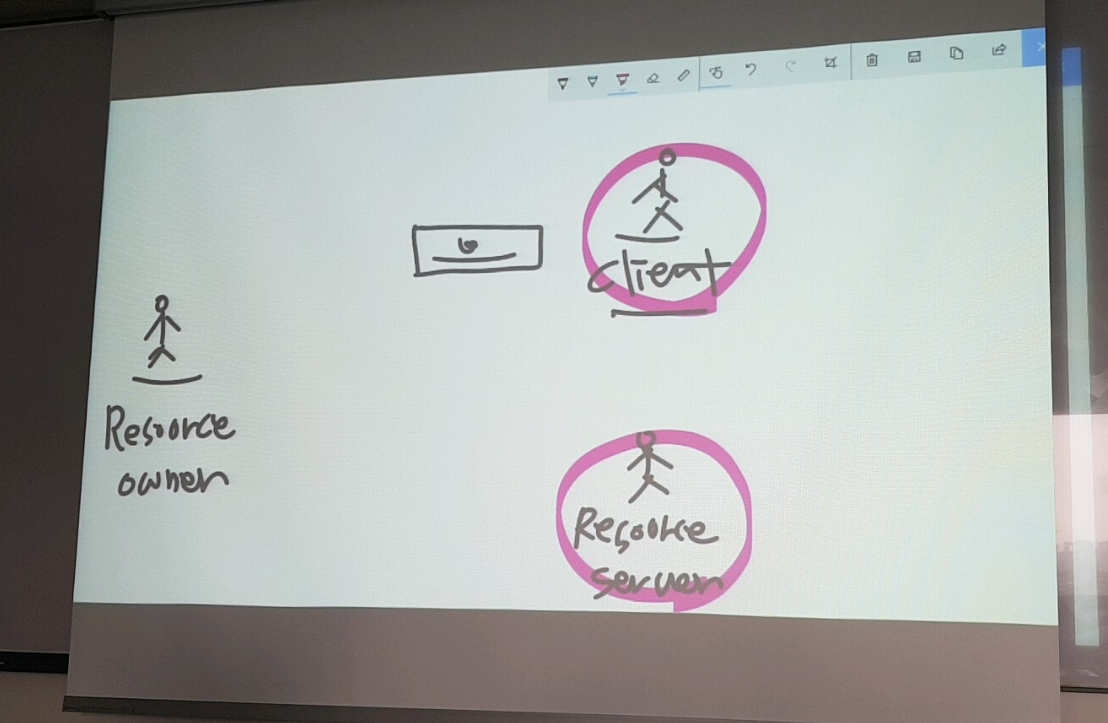 client
Resource
owner
Resource
server